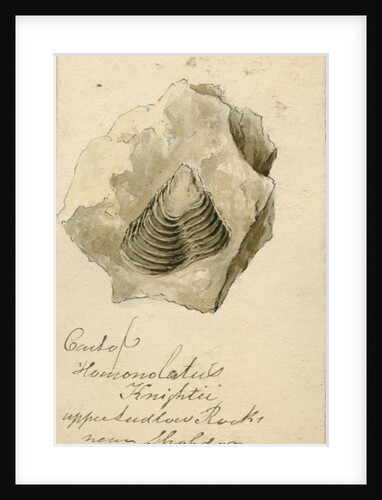 Cast of
Homonolatus
Knightii
upper Ludlow Rocks
near Shobdon